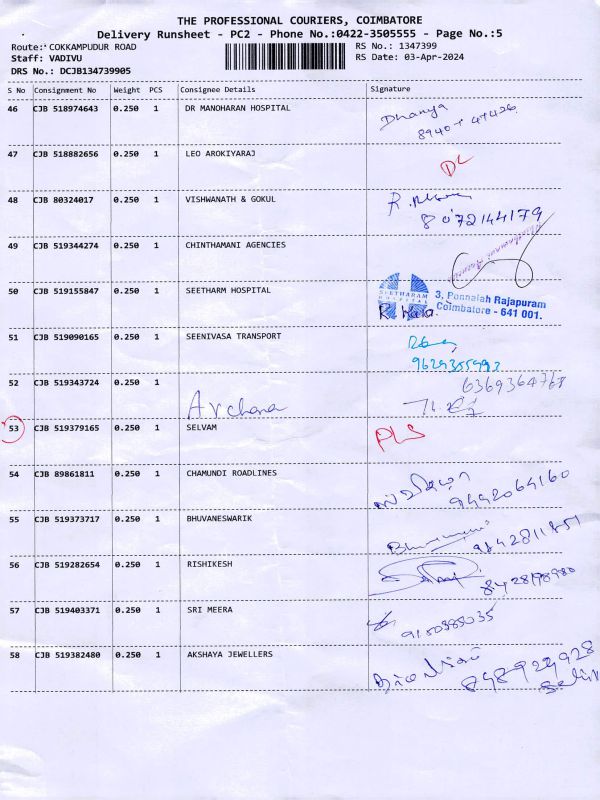 THE PROFESSIONAL COURIERS, COIMBATORE
Delivery Runsheet - PC2 - Phone No.:0422-3505555 - Page No.:5
Route: COKKAMPUDUR ROAD
RS No.: 1347399
Staff: VADIVU
RS Date: 03-Apr-2024
DRS No.: DCJB134739905
S No Consignment No Weight PCS Consignee Details Signature
46 CJB 518974643 0.250 1 DR MANOHARAN HOSPITAL Dhanya
47 CJB 518882656 0.250 1 LEO AROKIYARAJ DL
48 CJB 80324017 0.250 1 VISHWANATH & GOKUL R.
8072144179
49 CJB 519344274 0.250 1 CHINTHAMANI AGENCIES
50 CJB 519155847 0.250 1 SEETHARM HOSPITAL
SEETHARAM HOSPITAL 3, Ponnaiah Rajapuram
Coimbatore - 641 001.
R. Kala
51 CJB 519090165 0.250 1 SEENIVASA TRANSPORT
52 CJB 519343724 0.250 1 6369364768
Archana
53 CJB 519379165 0.250 1 SELVAM PLS
54 CJB 89861811 0.250 1 CHAMUNDI ROADLINES
9442064160
55 CJB 519373717 0.250 1 BHUVANESWARIK
9842811851
56 CJB 519282654 0.250 1 RISHIKESH
57 CJB 519403371 0.250 1 SRI MEERA
9150385035
58 CJB 519382480 0.250 1 AKSHAYA JEWELLERS